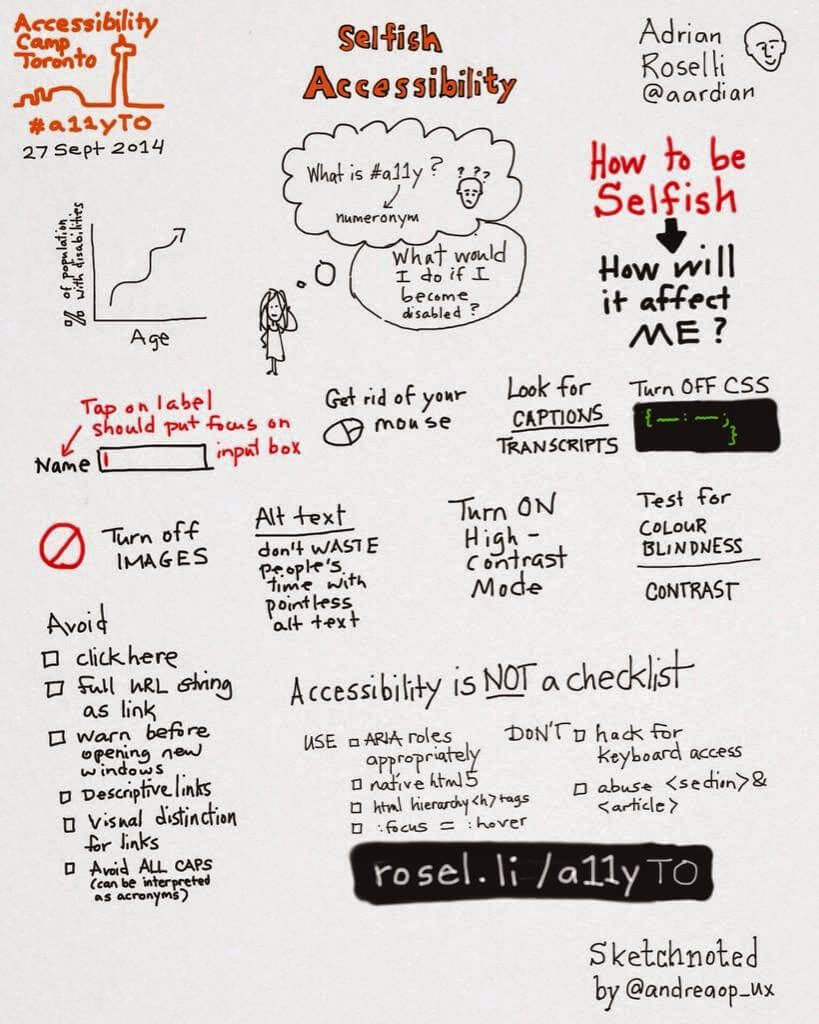 Accessibility
Camp
Toronto
#a11yTO
27 Sept 2014
Selfish
Accessibility
Adrian
Roselli
@aardian
What is #a11y?
???
numeronym
What would
I do if I
become
disabled?
How to be
Selfish
How will
it affect
ME?
% of population
with disabilities
Age
Tap on label
should put focus on
input box
Name
Get rid of your
mouse
Look for
CAPTIONS
TRANSCRIPTS
Turn OFF CSS
{ — : — ;
}
Turn off
IMAGES
Alt text
don't WASTE
people's
time with
pointless
alt text
Turn ON
High-
Contrast
Mode
Test for
COLOUR
BLINDNESS
CONTRAST
Avoid
click here
full URL string
as link
warn before
opening new
windows
Descriptive links
Visual distinction
for links
Avoid ALL CAPS
(can be interpreted
as acronyms)
Accessibility is NOT a checklist
USE
ARIA roles
appropriately
native html5
html hierarchy <h> tags
:focus = :hover
DON'T
hack for
keyboard access
abuse <section> &
<article>
rosel.li/a11yTO
Sketchnoted
by @andreaop_ux